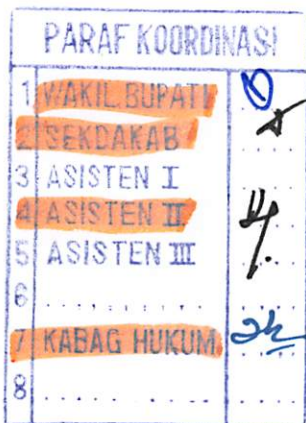 PARAF KOORDINASI
1 WAKIL BUPATI
2 SEKDAKAB
3 ASISTEN I
4 ASISTEN II
5 ASISTEN III
6 ..............
7 KABAG HUKUM
8 ..............